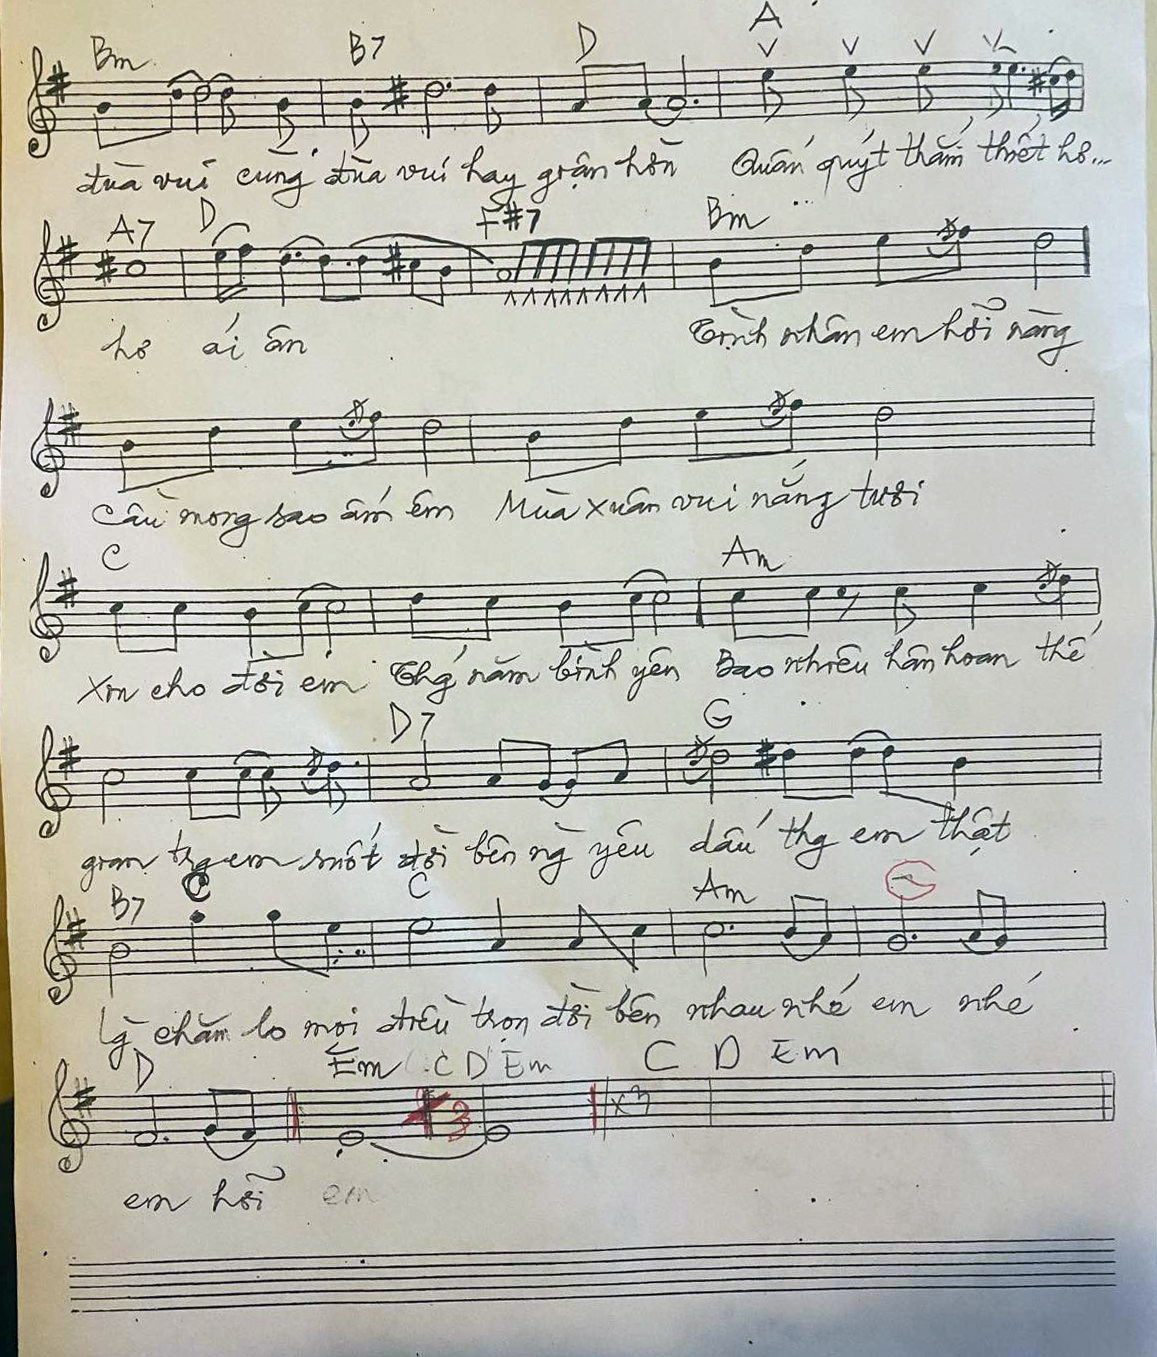 Bm B7 D A
đùa vui cùng đùa vui hay giận hờn Quấn quýt thắm thiết hơ...
A7 D F#7 Bm
hơ ái ân Tình nhân em hỡi nàng
Cầu mong sao ấm êm Mùa xuân vui nắng tươi
C Am
Xin cho đời em Thg năm bình yên Bao nhiêu hân hoan thế
D7 G
gian trg em suốt đời bên ng yêu dấu thg em thật
B7 C C Am G
lg chăm lo mọi điều trọn đời bên nhau nhé em nhé
D Em C D Em C D Em
3 x3
em hỡi em